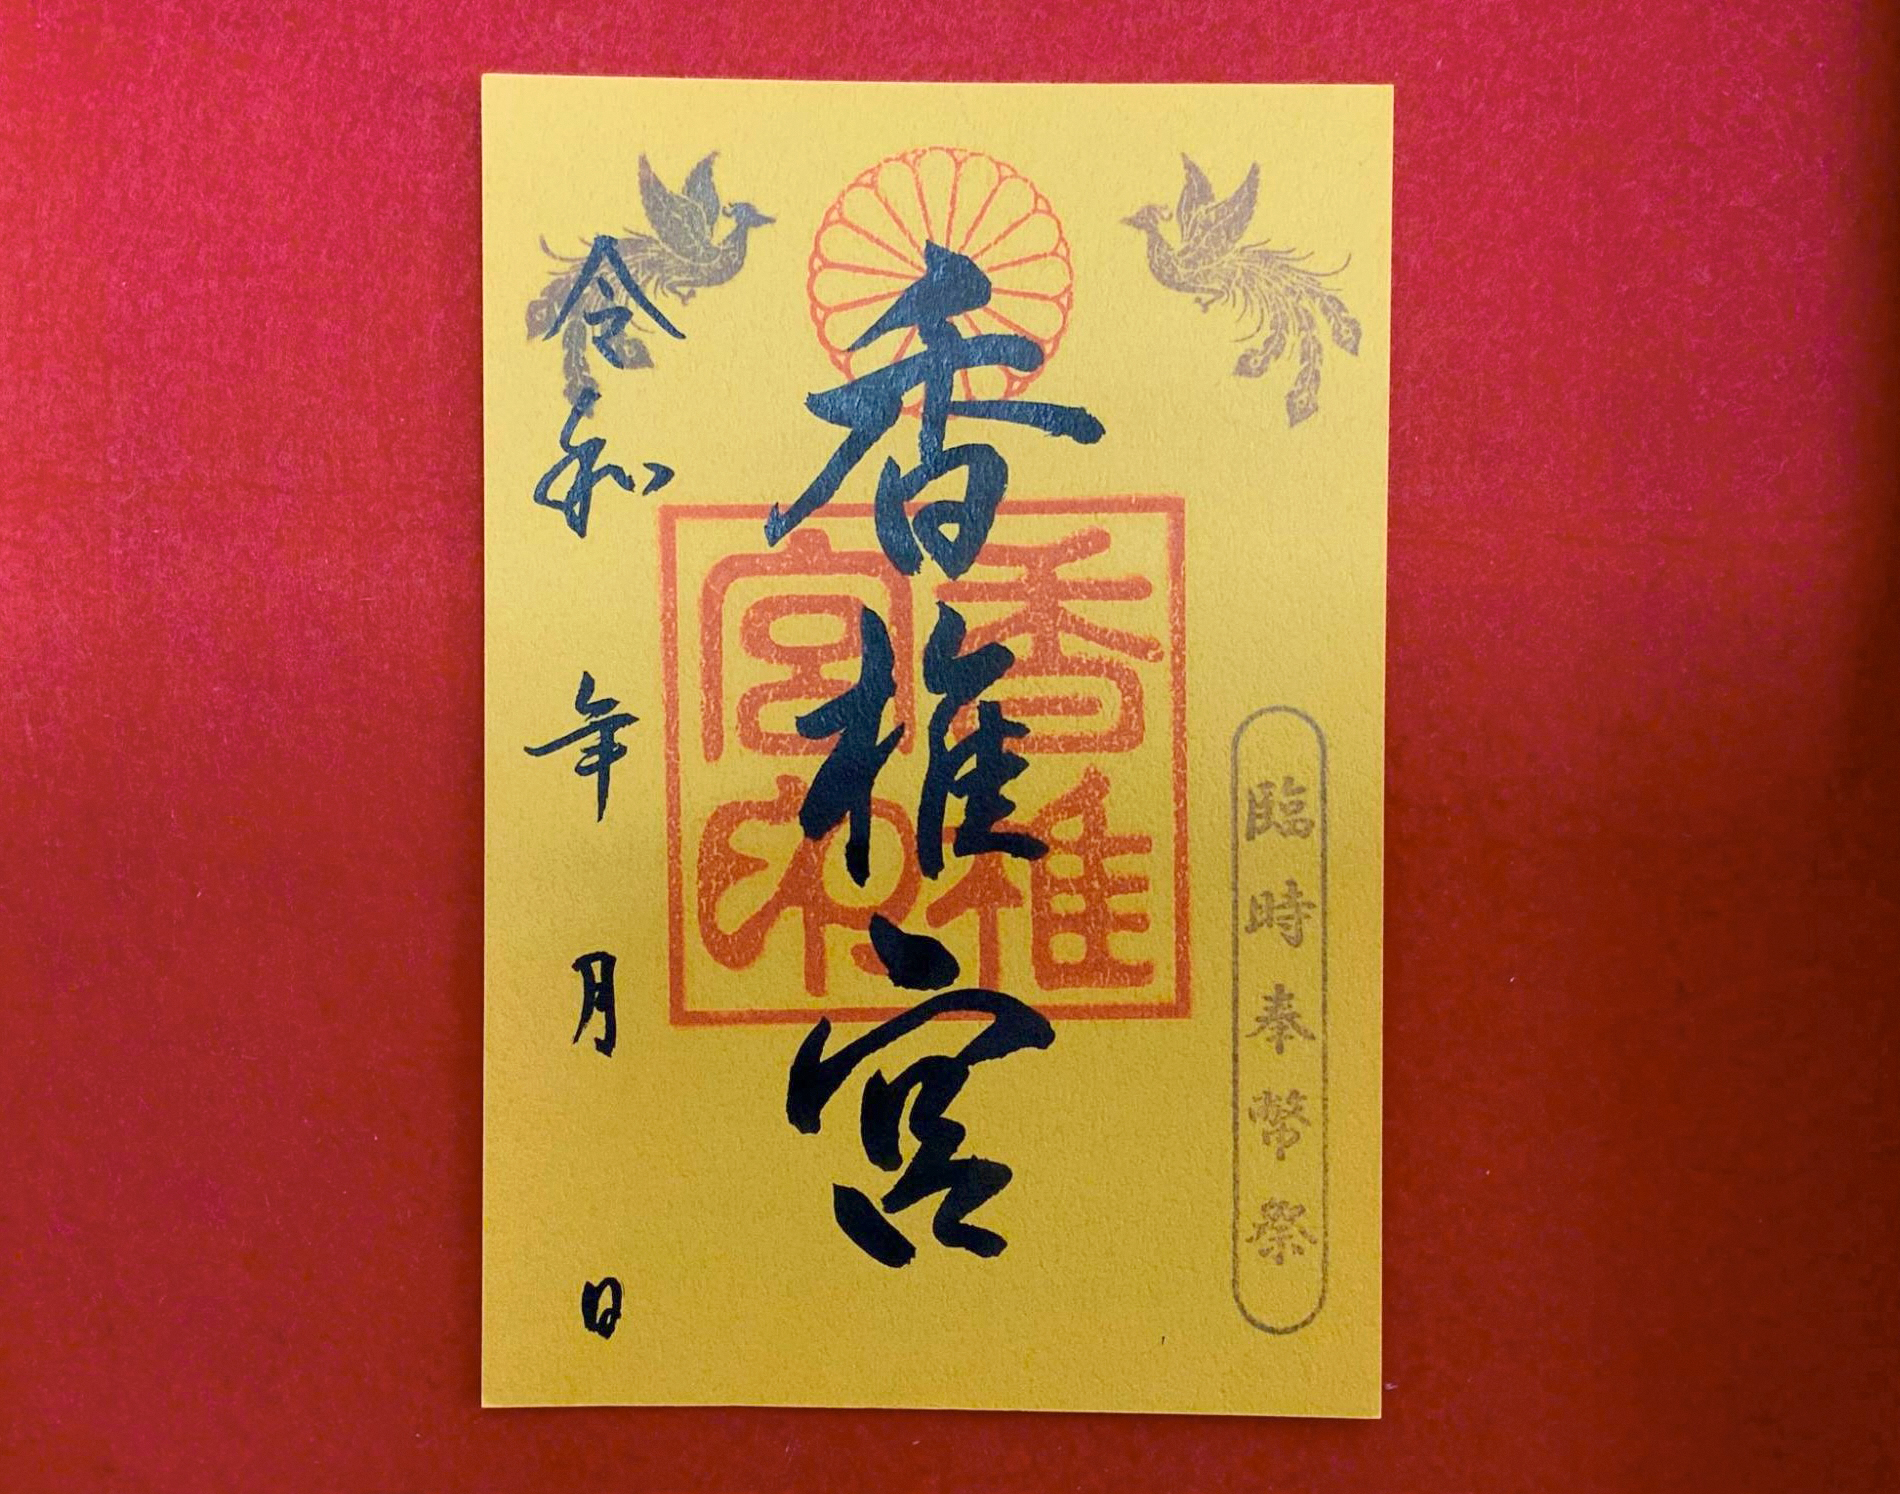 臨時奉幣祭
香椎宮
香椎宮印
令和 年 月 日